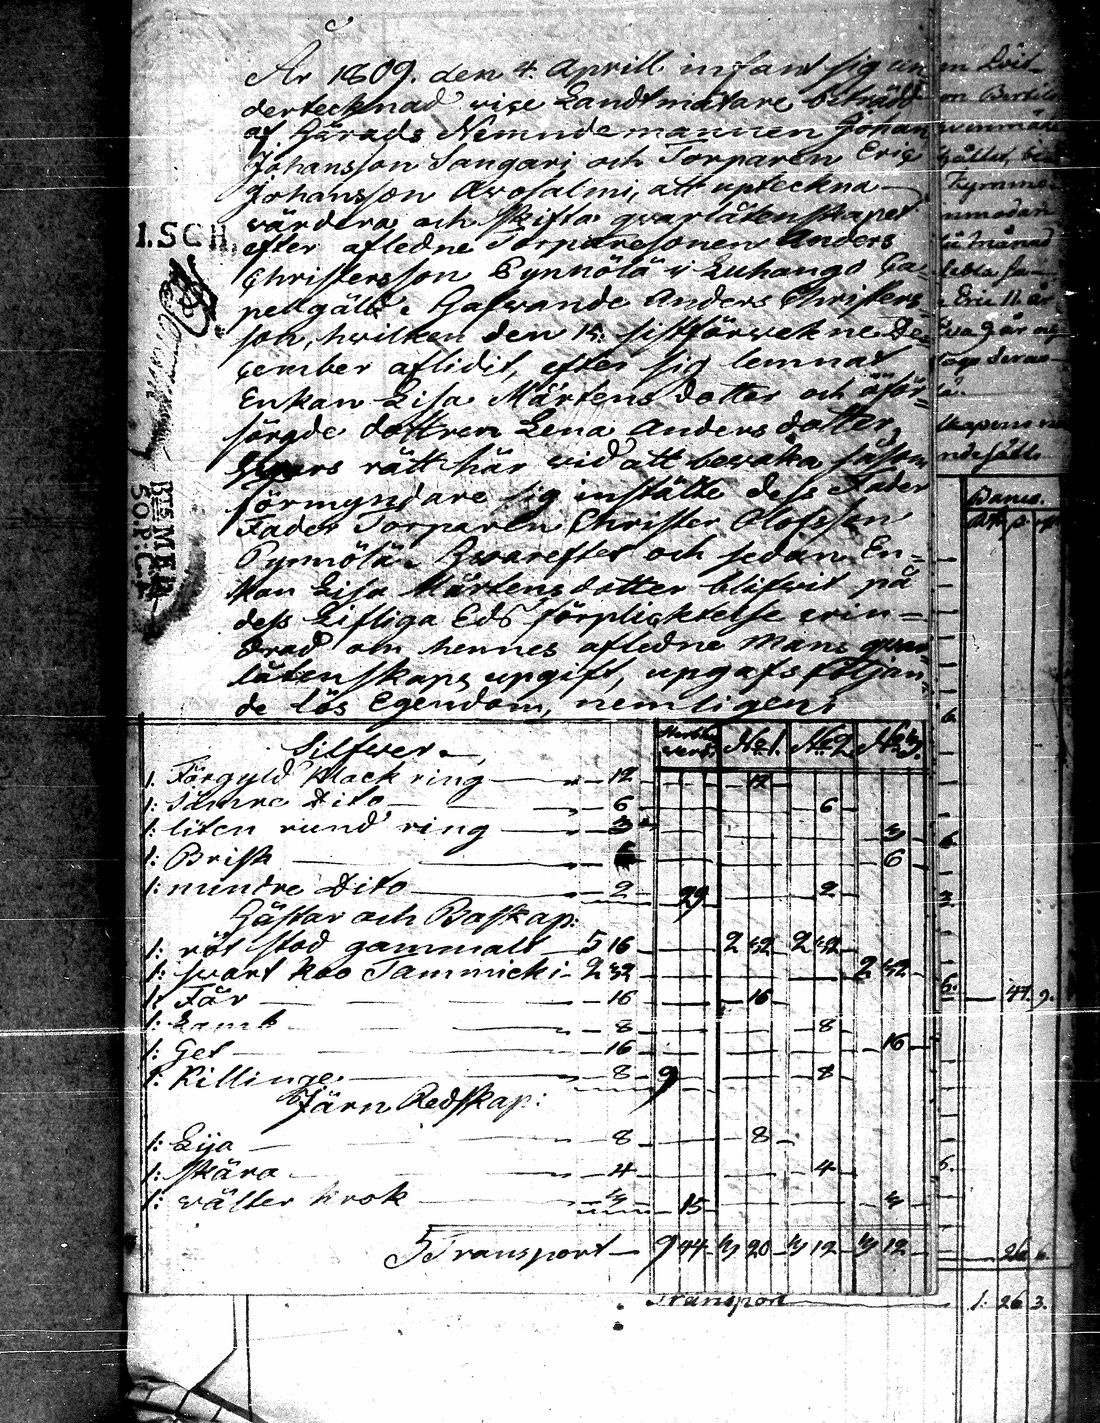 År 1809. den 4. Aprill infant sig un
dertecknad vice Landtmätare biträdd
af Härads Nemndemannen Johan
Johansson Tangari och Torparen Eric
Johansson Awosalmi, att upteckna
wärdera och skifta qwarlåtenskapet
efter afledne Torparesonen Anders
Christersson Pynnölä i Luhango Ca=
pellgäld. Hafwande Anders Christers=
son, hwilken den 14. sistförwekne De=
cember aflidit, efter sig lemnat
Enkan Lisa Mårtens dotter och oför=
sörgde dottren Lena Anders dotter,
hwars rätt här wid att bewaka såsom
förmyndare sig instälte dess Fader
Fader Torparen Christer Olofsson
Pynnölä. Hwarefter och sedan En=
kan Lisa Mårtensdotter blifwit på
dess Lifliga Eds förplicktelse erin=
drad om hennes afledne Mans qwar
låtenskaps upgift, upgafs följan=
de lös Egendom, nemligen;
1.SCH.
BTSMEL
50.R:C:
Sterbh.
werd. No 1. No 2. No 3.
Silfwer.
1: Förgyld klack ring 12 12
1: Sämre Dito 6 6
1: liten rund ring 3 3
1: Brisk 6 6
1: mindre Dito 2 29 2
Hästar och Boskap:
1: röt stod gammalt 5 16 2 32 2 32
1: swart koo Tammicki 2 32 2 32
1: Får 16 16
1: Lamb 8 8
1: Get 16 16
1: Killinge 8 9 8
Järn Redskap:
1: Lija 8 8
1: skära 4 4
1: wälter krok 3 15 3
Transport 9 44 3 20 3 12 3 12
Banco.
47. 9.
26. 6.
Transport 1: 26 3.